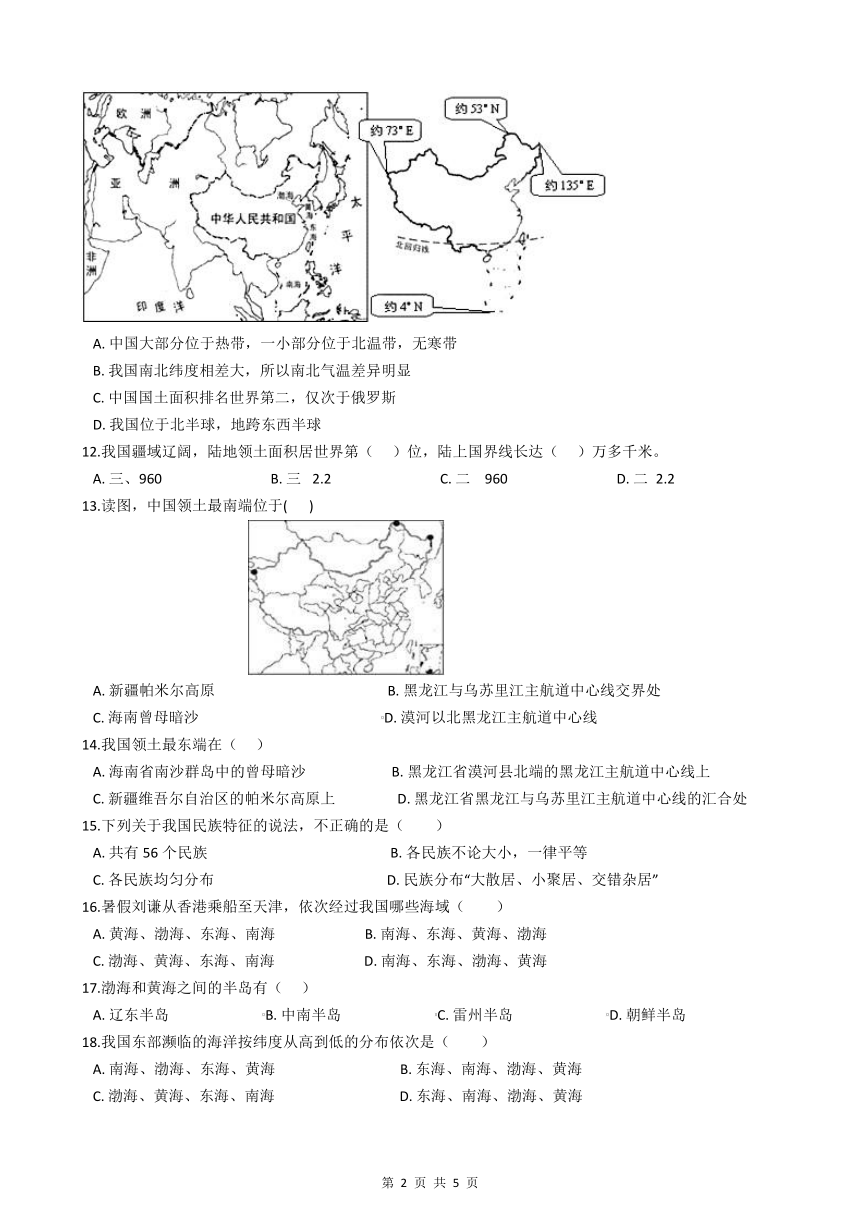 欧 洲
亚 洲
渤海
黄海
中华人民共和国
东海
太平洋
非洲
南海
印 度 洋
约53° N
约73° E
约135° E
北回归线
约4° N
A. 中国大部分位于热带，一小部分位于北温带，无寒带
B. 我国南北纬度相差大，所以南北气温差异明显
C. 中国国土面积排名世界第二，仅次于俄罗斯
D. 我国位于北半球，地跨东西半球
12.我国疆域辽阔，陆地领土面积居世界第（ ）位，陆上国界线长达（ ）万多千米。
A. 三、960 B. 三 2.2 C. 二 960 D. 二 2.2
13.读图，中国领土最南端位于( )
A. 新疆帕米尔高原 B. 黑龙江与乌苏里江主航道中心线交界处
C. 海南曾母暗沙 D. 漠河以北黑龙江主航道中心线
14.我国领土最东端在（ ）
A. 海南省南沙群岛中的曾母暗沙 B. 黑龙江省漠河县北端的黑龙江主航道中心线上
C. 新疆维吾尔自治区的帕米尔高原上 D. 黑龙江省黑龙江与乌苏里江主航道中心线的汇合处
15.下列关于我国民族特征的说法，不正确的是（ ）
A. 共有 56 个民族 B. 各民族不论大小，一律平等
C. 各民族均匀分布 D. 民族分布“大散居、小聚居、交错杂居”
16.暑假刘谦从香港乘船至天津，依次经过我国哪些海域（ ）
A. 黄海、渤海、东海、南海 B. 南海、东海、黄海、渤海
C. 渤海、黄海、东海、南海 D. 南海、东海、渤海、黄海
17.渤海和黄海之间的半岛有（ ）
A. 辽东半岛 B. 中南半岛 C. 雷州半岛 D. 朝鲜半岛
18.我国东部濒临的海洋按纬度从高到低的分布依次是（ ）
A. 南海、渤海、东海、黄海 B. 东海、南海、渤海、黄海
C. 渤海、黄海、东海、南海 D. 东海、南海、渤海、黄海
第 2 页 共 5 页